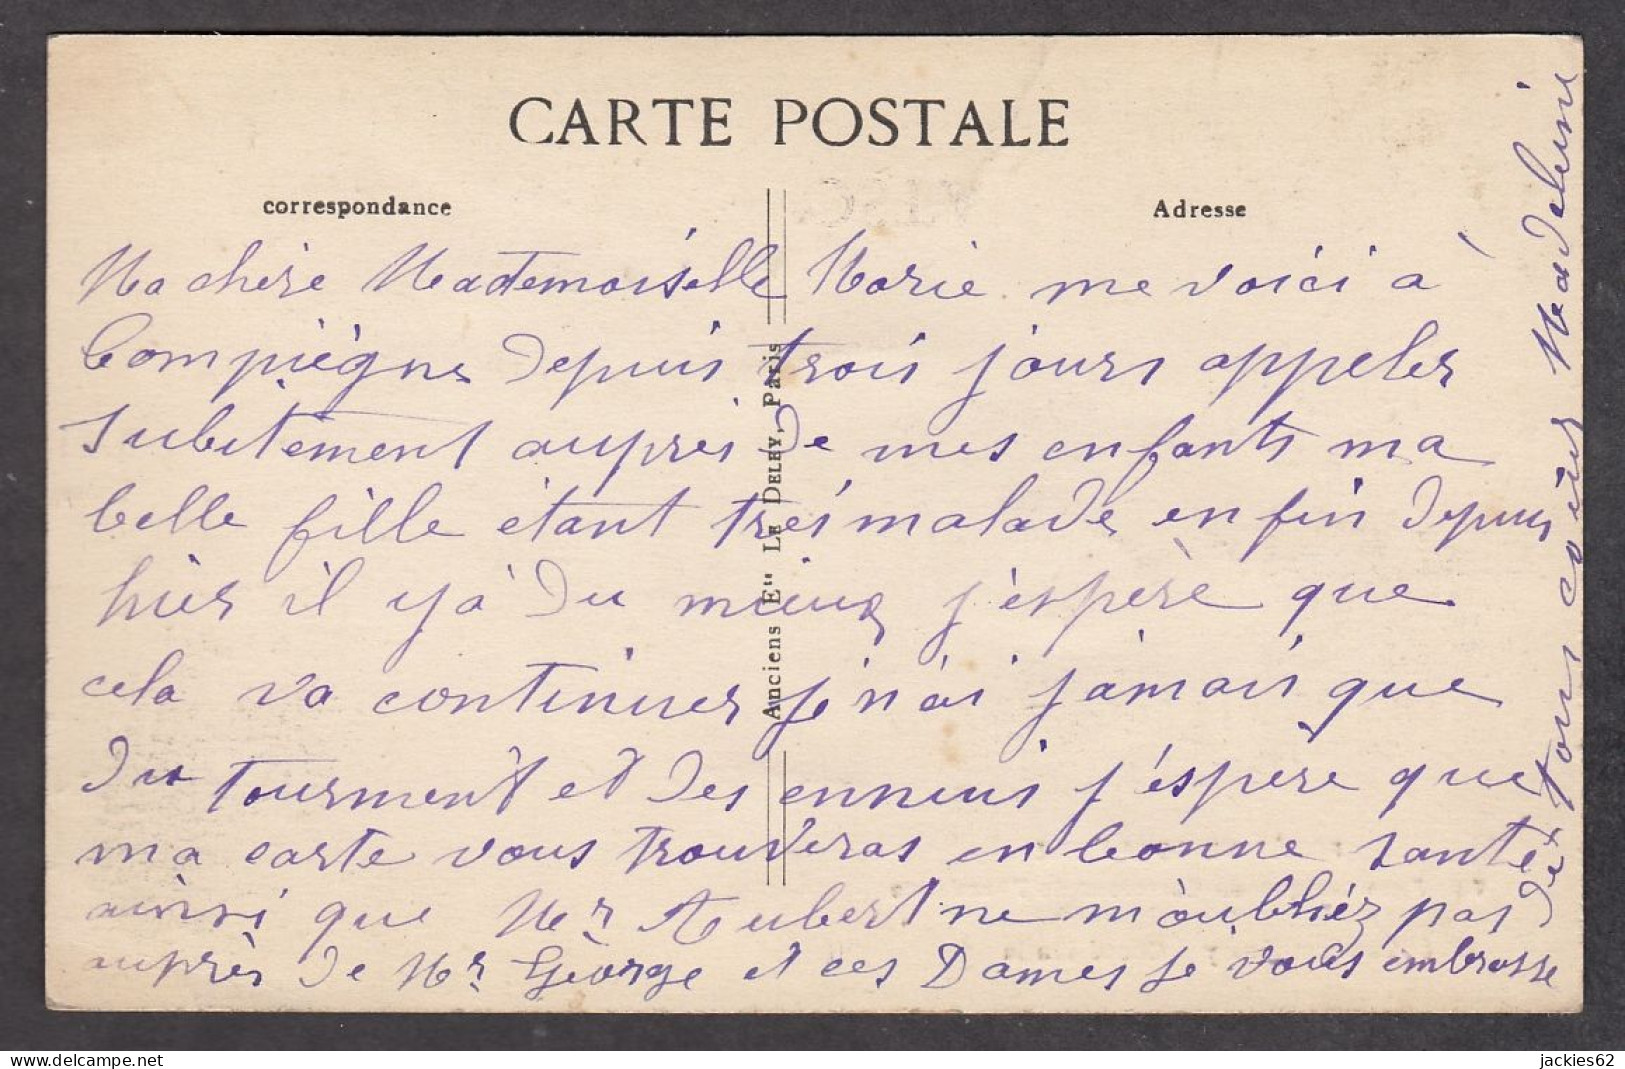 CARTE POSTALE
correspondance
Adresse
Ma chère Mademoiselle Marie me voici à
Compiègne depuis trois jours appeler
subitement auprès de mes enfants ma
belle fille étant très malade enfin depuis
hier il y à du mieux j'espère que
cela va continuer je n'ai jamais que
du tourment et des ennuis j'espère que
ma carte vous trouveras en bonne santé
ainsi que Mr Aubert ne m'oubliéz pas
auprès de Mr George et ces Dames je vous embrasse
de tous cœur Madeleine
Anciens Ets LE DELEY, Paris
jackies62
© delcampe.net